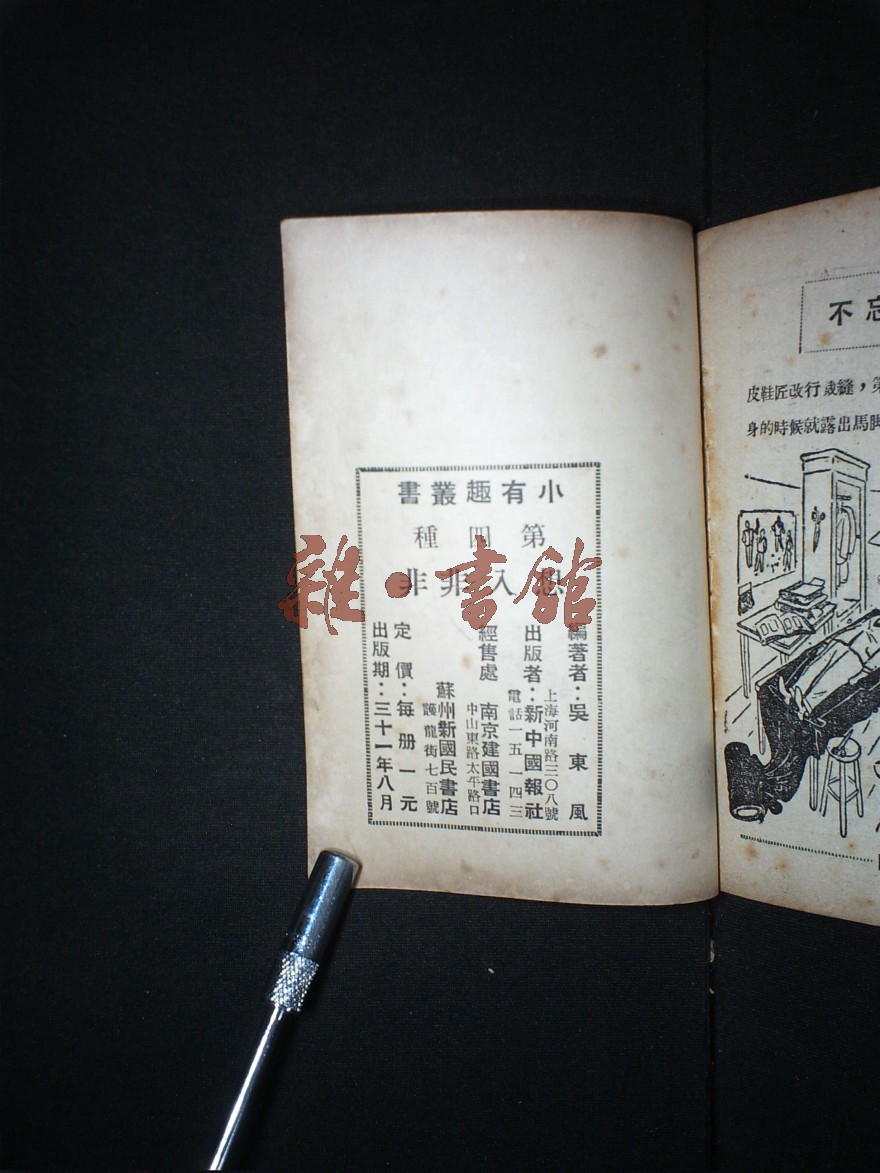 小有趣叢書
第四種
想入非非
編著者：吳東風
上海河南路三〇八號
出版者：新中國報社
電話一五一四三
經售處
南京建國書店
中山東路太平路口
蘇州新國民書店
護龍街七百號
定價：每册一元
出版期：三十一年八月
雜·書館
不忘
皮鞋匠改行裁縫，第
身的時候就露出馬脚